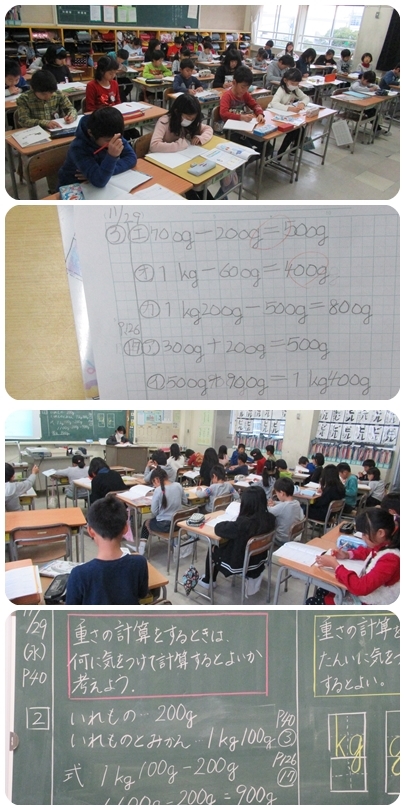 11/29
③ ㋓ 700g－200g＝500g
㋔ 1kg－600g＝400g
㋕ 1kg200g－500g＝800g
P126
⑰ ㋐ 300g＋200g＝500g
㋑ 500g＋900g＝1kg400g
11/29
(水)
P40
重さの計算をするときは、
何に気をつけて計算するとよいか
考えよう。
2
いれもの…200g
いれものとみかん…1kg100g
P40
③
P126
⑰
式 1kg100g－200g
1100g－200g＝900g
重さの計算
たんいに気を
するとよい。
kg